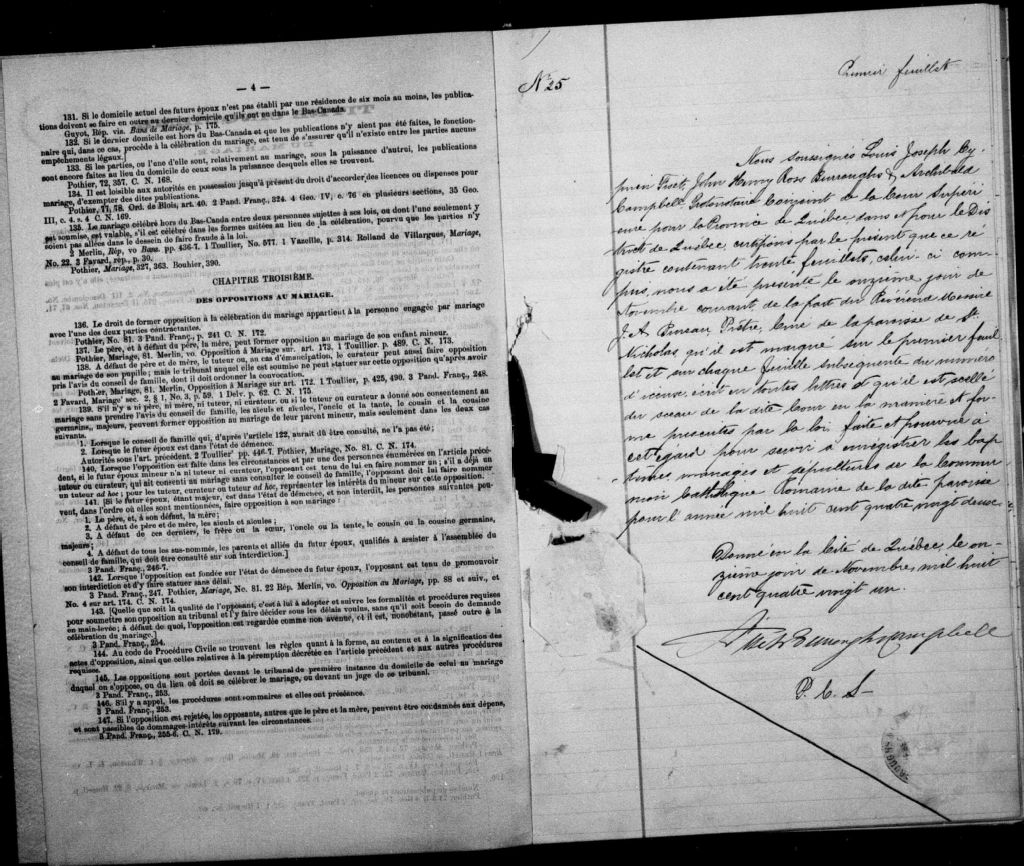 — 4 —
131. Si le domicile actuel des futurs époux n'est pas établi par une résidence de six mois au moins, les publica-
tions doivent se faire en outre au dernier domicile qu'ils ont eu dans le Bas-Canada.
Guyot, Rép. vis. Bans de Mariage, p. 175.
132. Si le dernier domicile est hors du Bas-Canada et que les publications n'y aient pas été faites, le fonction-
naire qui, dans ce cas, procède à la célébration du mariage, est tenu de s'assurer qu'il n'existe entre les parties aucuns
empêchements légaux.]
133. Si les parties, ou l'une d'elle sont, relativement au mariage, sous la puissance d'autrui, les publications
sont encore faites au lieu du domicile de ceux sous la puissance desquels elles se trouvent.
Pothier, 72, 357. C. N. 168.
134. Il est loisible aux autorités en possession jusqu'à présent du droit d'accorder des licences ou dispenses pour
mariage, d'exempter des dites publications.
Pothier, 77, 78. Ord. de Blois, art. 40. 2 Pand. Franç., 324. 4 Geo. IV, c. 76 en plusieurs sections, 35 Geo.
III, c. 4. s. 4 C. N. 169.
135. Le mariage célébré hors du Bas-Canda entre deux personnes sujettes à ses lois, ou dont l'une seulement y
est soumise, est valable, s'il est célébré dans les formes usitées au lieu de la célébration, pourvu que les parties n'y
soient pas allées dans le dessein de faire fraude à la loi.
2 Merlin, Rép, vo Bans. pp. 436-7. 1 Toullier, No. 577. 1 Vazeille, p. 314. Rolland de Villargues, Mariage,
No. 22. 3 Favard, rép., p. 30.
Pothier, Mariage, 327, 363. Bouhier, 390.
CHAPITRE TROISIÈME.
DES OPPOSITIONS AU MARIAGE.
136. Le droit de former opposition à la célébration du mariage appartient à la personne engagée par mariage
avec l'une des deux parties contractantes.
Pothier, No. 81. 3 Pand. Franç., p. 241 C. N. 172.
137. Le père, et à défaut de père, la mère, peut former opposition au mariage de son enfant mineur.
Pothier, Mariage, 81. Merlin, vo. Opposition à Mariage sur art. 173. 1 Toullier. p. 489. C. N. 173.
138. A défaut de père et de mère, le tuteur, ou, au cas d'émancipation, le curateur peut aussi faire opposition
au mariage de son pupille; mais le tribunal auquel elle est soumise ne peut statuer sur cette opposition qu'après avoir
pris l'avis du conseil de famille, dont il doit ordonner la convocation.
Pothier, Mariage, 81. Merlin, Opposition à Mariage sur art. 172. 1 Toulier, p. 425, 490. 3 Pand. Franç., 248.
2 Favard, Mariage' sec. 2. § 1, No. 3, p. 59. 1 Delv. p. 62. C. N. 175
139. S'il n'y a ni père, ni mère, ni tuteur, ni curateur, ou si le tuteur ou curateur a donné son consentement au
mariage sans prendre l'avis du conseil de famille, les aïeuls et aïeules, l'oncle et la tante, le cousin et la cousine
germains, majeurs, peuvent former opposition au mariage de leur parent mineur, mais seulement dans les deux cas
suivants.
1. Lorsque le conseil de famille qui, d'après l'article 122, aurait dû être consulté, ne l'a pas été;
2. Lorsque le futur époux est dans l'état de démence.
Autorités sous l'art. précédent. 2 Toullier pp. 446-7. Pothier, Mariage, No. 81. C. N. 174.
140. Lorsque l'opposition est faite dans les circonstances et par une des personnes énumérées en l'article précé-
dent, si le futur époux mineur n'a ni tuteur ni curateur, l'opposant est tenu de lui en faire nommer un; s'il a déjà un
tuteur ou curateur, qui ait consenti au mariage sans consulter le conseil de famille, l'opposant doit lui faire nommer
un tuteur ad hoc; pour les tuteur, curateur ou tuteur ad hoc, représenter les intérêts du mineur sur cette opposition.
141. [Si le futur époux, étant majeur, est dans l'état de démence, et non interdit, les personnes suivantes peu-
vent, dans l'ordre où elles sont mentionnées, faire opposition à son mariage:
1. Le père, et, à son défaut, la mère;
2. A défaut de père et de mère, les aïeuls et aïeules;
3. A défaut de ces derniers, le frère ou la sœur, l'oncle ou la tante, le cousin ou la cousine germains,
majeurs;
4. A défaut de tous les sus-nommés, les parents et alliés du futur époux, qualifiés à assister à l'assemblée du
conseil de famille, qui doit être consulté sur son interdiction.]
3 Pand. Franç., 246-7.
142. Lorsque l'opposition est fondée sur l'état de démence du futur époux, l'opposant est tenu de promouvoir
son interdiction et d'y faire statuer sans délai.
3 Pand. Franç., 247. Pothier, Mariage, No. 81. 22 Rép. Merlin, vo. Opposition au Mariage, pp. 88 et suiv., et
No. 4 sur art. 174. C. N. 174.
143. [Quelle que soit la qualité de l'opposant, c'est à lui à adopter et suivre les formalités et procédures requises
pour soumettre son opposition au tribunal et l'y faire décider sous les délais voulus, sans qu'il soit besoin de demande
en main-levée; à défaut de quoi, l'opposition est regardée comme non avenue, et il est, nonobstant, passé outre à la
célébration du mariage.]
3 Pand. Franç., 254.
144. Au code de Procédure Civile se trouvent les règles quant à la forme, au contenu et à la signification des
actes d'opposition, ainsi que celles relatives à la péremption décrétée en l'article précédent et aux autres procédures
requises.
145. Les oppositions sont portées devant le tribunal de première instance du domicile de celui au mariage
duquel on s'oppose, ou du lieu où doit se célébrer le mariage, ou devant un juge de ce tribunal.
2 Pand. Franç., 253.
146. S'il y a appel, les procédures sont sommaires et elles ont préséance.
3 Pand. Franç., 253.
147. Si l'opposition est rejetée, les opposants, autres que le père et la mère, peuvent être condamnés aux dépens,
et sont passibles de dommages-intérêts suivant les circonstances.
3 Pand. Franç., 255-6. C. N. 179.
No 25
Premier feuillet
Nous soussignés Louis Joseph Cy-
prien Fiset, John Henry Ross Burroughs & Archibald
Campbell Protonotaire Conjoint de la Cour Supéri-
eure pour la Province de Québec dans et pour le Dis-
trict de Québec, certifions par le présent que ce ré-
gistre contenant trente feuillets, celui-ci com-
pris, nous a été présenté le onzième jour de
Novembre courant de la part du Révérend Messire
J. A. Bureau, Prêtre, Curé de la paroisse de St.
Nicholas, qu'il est marqué sur le premier feuil
let et sur chaque feuille subsequente du numéro
d'icenx, écrit en toutes lettres et qu'il est scellé
du sceau de la dite Cour en la manière et for-
me prescrites par la loi faite et pourvue à
cet égard pour servir à enrégistrer les bap
têmes, mariages et sépultures de la Commu
nion Catholique Romaine de la dite paroisse
pour l'année mil huit cent quatre vingt deux.
Donné en la Cité de Québec, le on-
zième jour de Novembre, mil huit
cent quatre vingt un.
Fiset Burroughs Campbell
P. C. S.